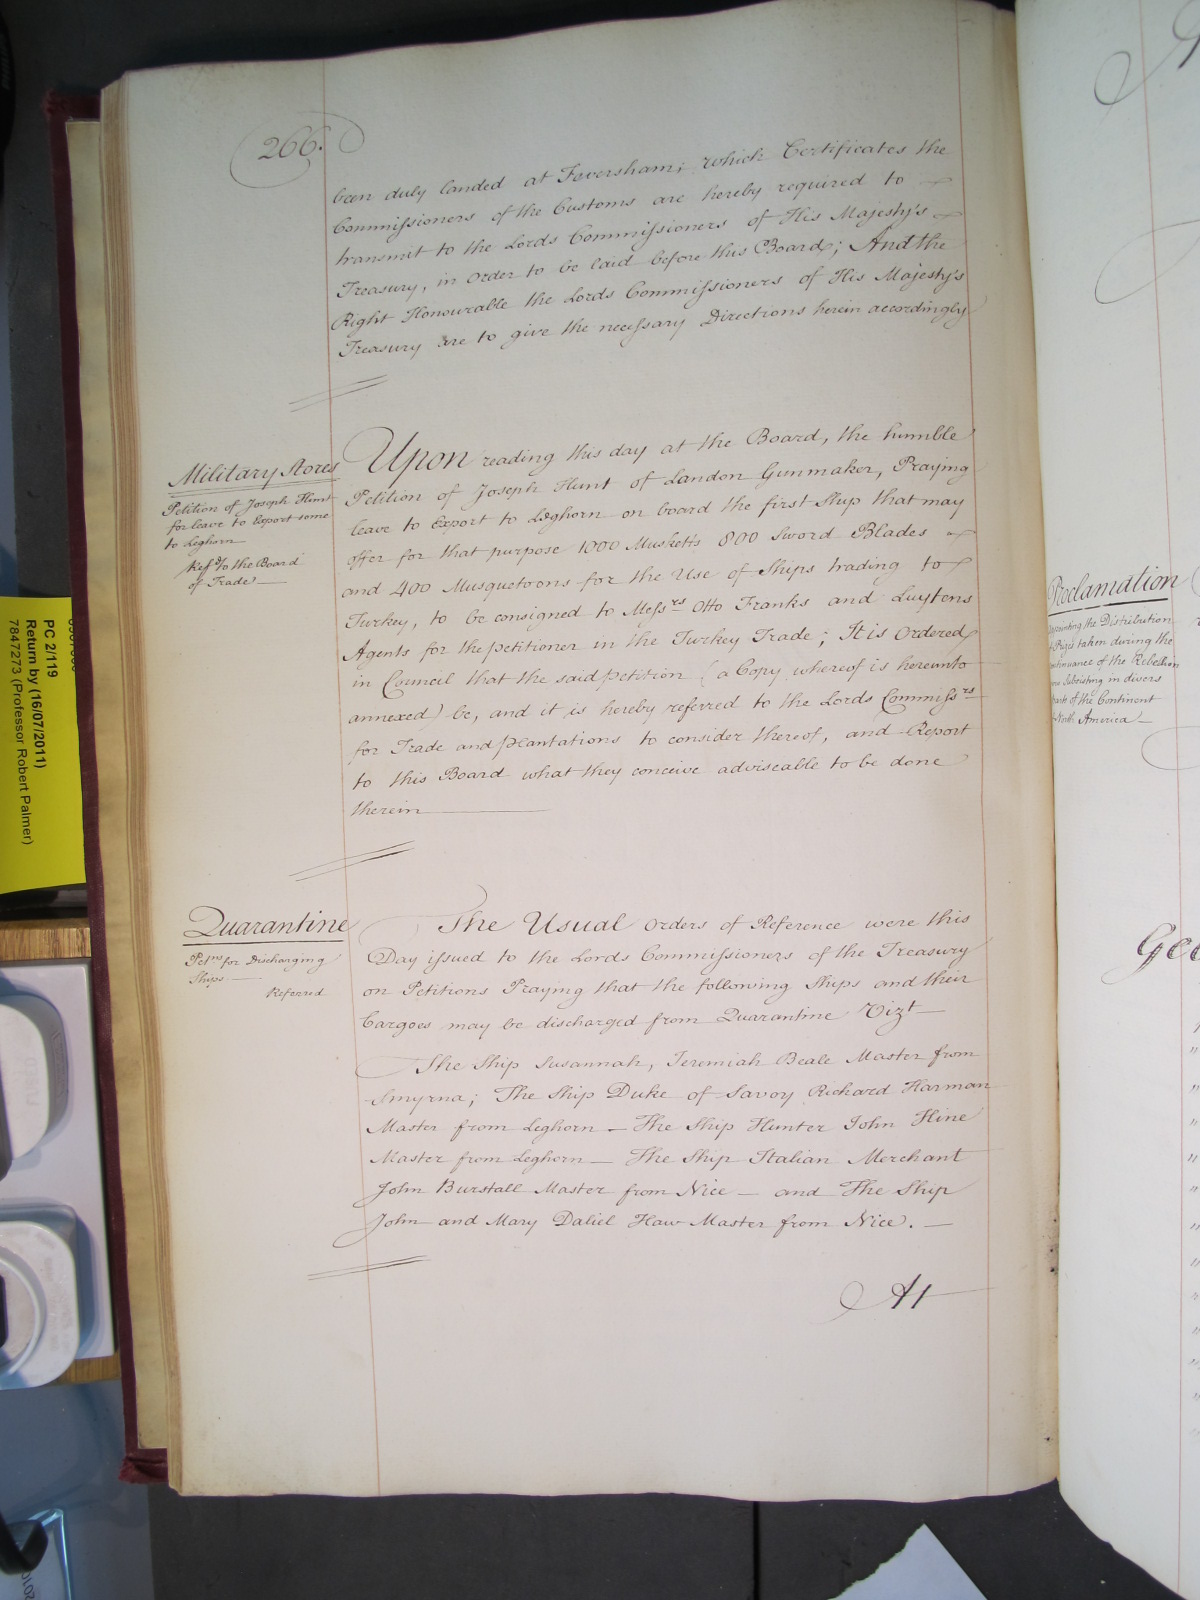 266.
been duly landed at Feversham; which Certificates the
Commissioners of the Customs are hereby required to
transmit to the Lords Commissioners of His Majesty's
Treasury, in Order to be laid before this Board; And the
Right Honourable the Lords Commissioners of His Majesty's
Treasury are to give the necessary Directions herein accordingly
Military Stores
Petition of Joseph Hunt
for leave to Export some
to Leghorn
Ref.d to the Board
of Trade
Upon reading this day at the Board, the humble
Petition of Joseph Hunt of London Gunmaker, Praying
leave to Export to Leghorn on board the first Ship that may
offer for that purpose 1000 Muskets 800 Sword Blades
and 400 Musquetoons for the Use of Ships trading to
Turkey, to be consigned to Mess.rs Otto Franks and Luytens
Agents for the petitioner in the Turkey Trade; It is Ordered
in Council that the said petition (a Copy whereof is hereunto
annexed) be, and it is hereby referred to the Lords Commiss.rs
for Trade and plantations to consider thereof, and Report
to this Board what they conceive adviseable to be done
therein
Quarantine
Pet.ns for Discharging
Ships
Referred
The Usual Orders of Reference were this
Day issued to the Lords Commissioners of the Treasury
on Petitions Praying that the following Ships and their
Cargoes may be discharged from Quarantine Vizt
The Ship Susannah, Jeremiah Beale Master from
Smyrna; The Ship Duke of Savoy Richard Harman
Master from Leghorn — The Ship Hunter John Hine
Master from Leghorn — The Ship Italian Merchant
John Burstall Master from Nice — and The Ship
John and Mary Daliel Haw Master from Nice. —
At
Proclamation
the Distribution
taken during the
of the Rebellion
Subsisting in divers
of the Continent
North America
PC 2/119
Return by (16/07/2011)
7847273 (Professor Robert Palmer)